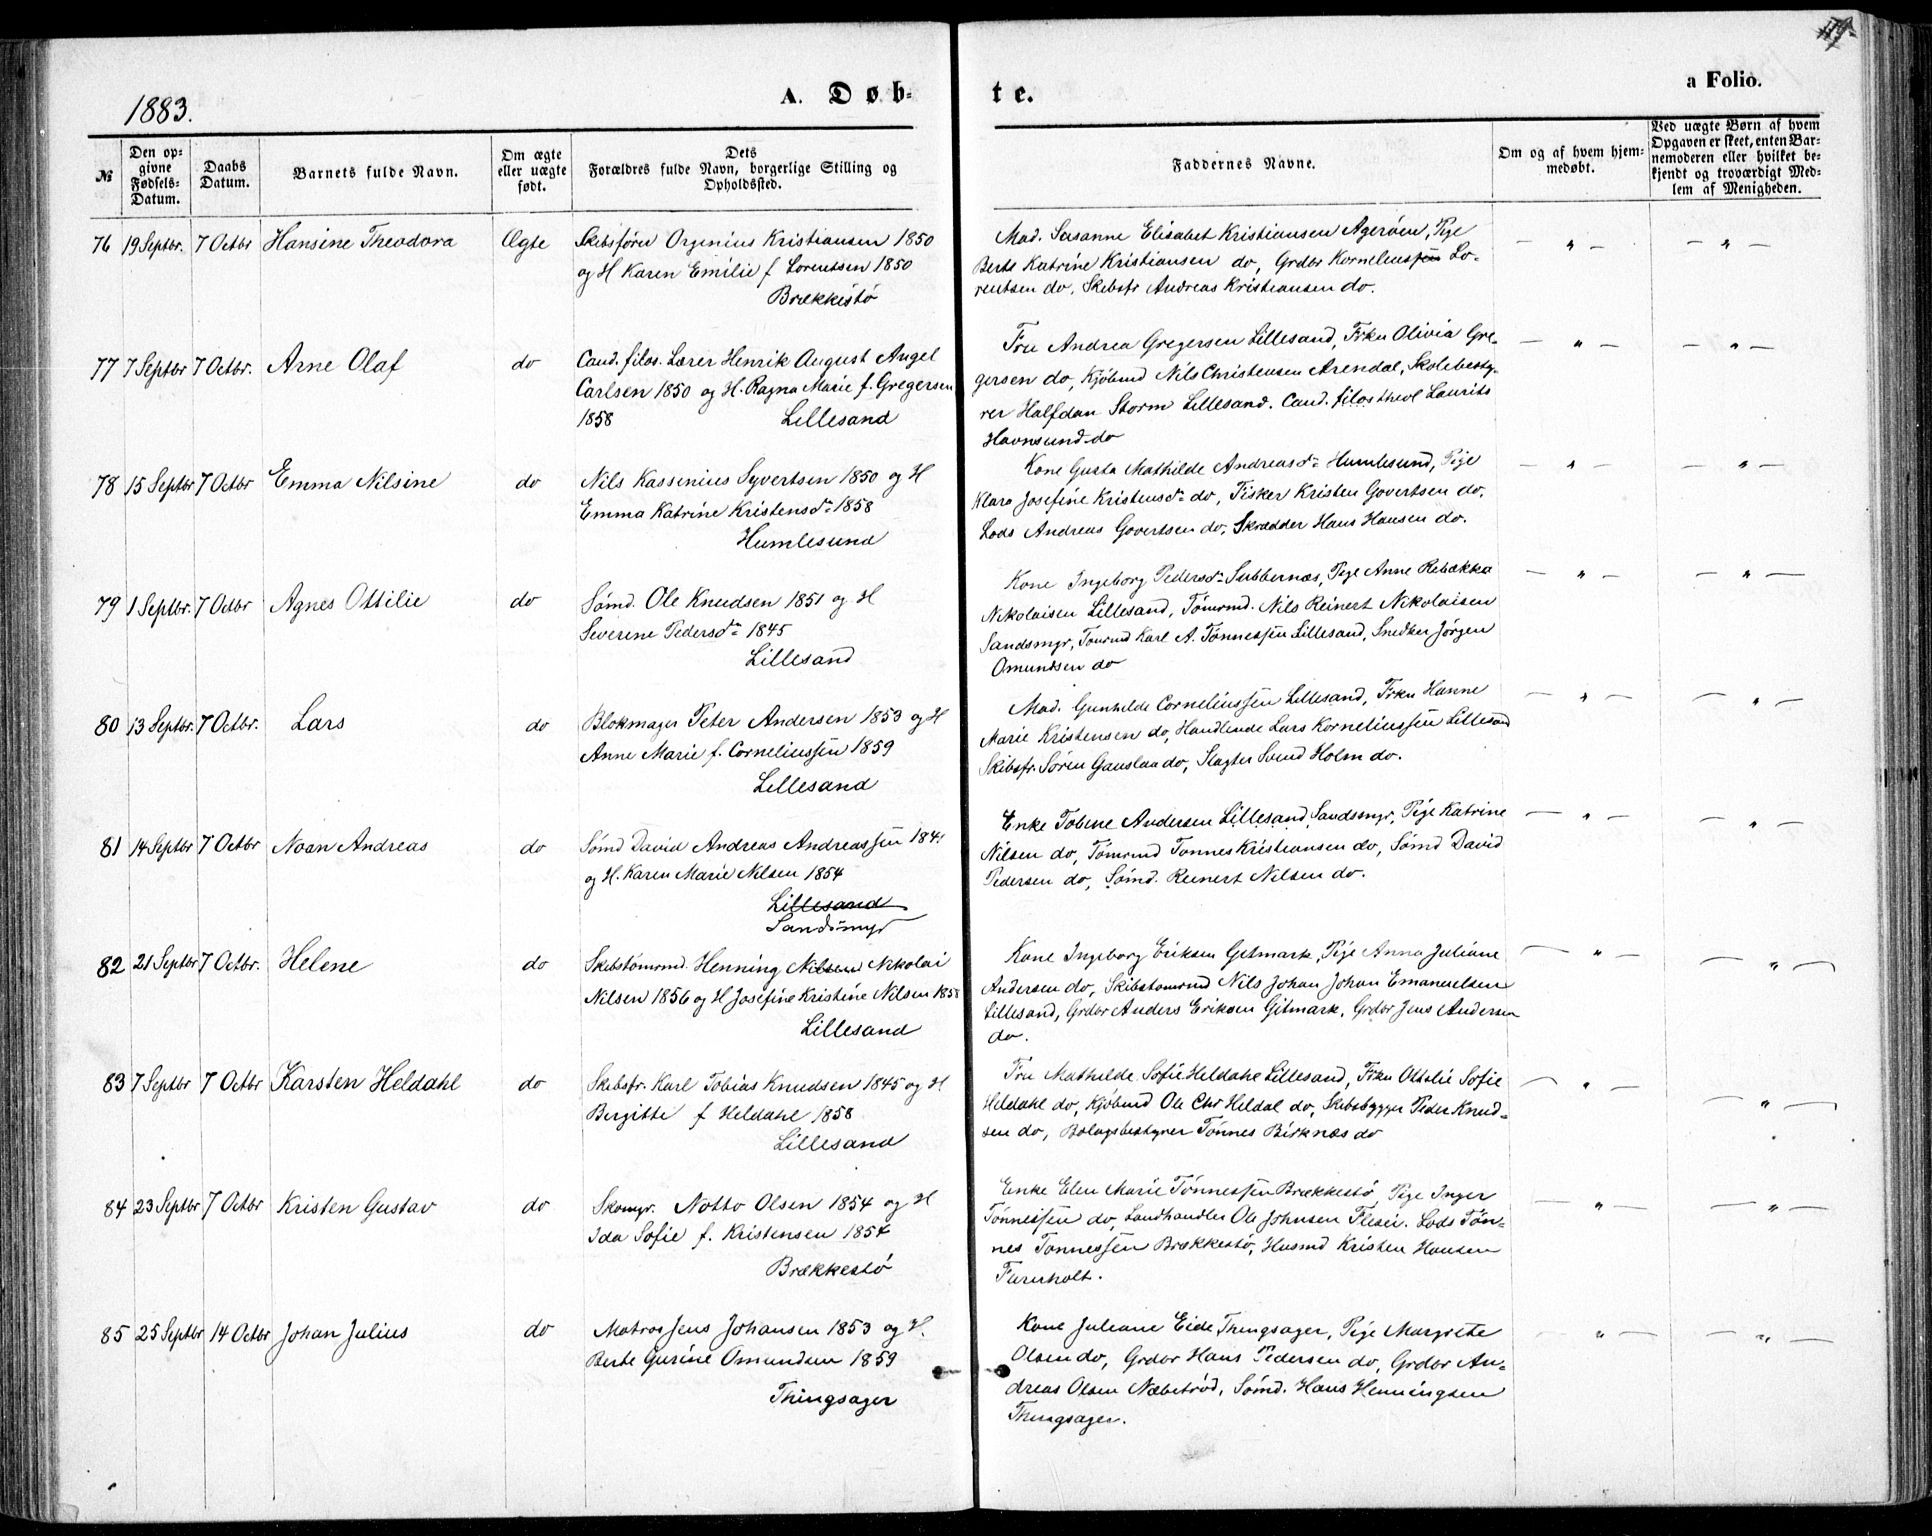 1883.
A. Døb-
te.
a Folio.
№
Den op-
givne
Fødsels-
Datum.
Daabs
Datum.
Barnets fulde Navn.
Om ægte
eller uægte
født.
Dets
Forældres fulde Navn, borgerlige Stilling og
Opholdssted.
Faddernes Navne.
Om og af hvem hjem-
medøbt.
Ved uægte Børn af hvem
Opgaven er skeet, enten Bar-
nemoderen eller hvilket be-
kjendt og troværdigt Med-
lem af Menigheden.
76 19 Septbr. 7 Octbr Hansine Theodora Ægte
Skibsfører Orgenius Kristiansen 1850
og H Karen Emilie f Lorentsen 1850
Brækkestø
Mad. Susanne Elisabet Kristiansen Agerøen, Pige
Berte Katrine Kristiansen do, Grdbr Kornelius Lo-
rentsen do, Skibsfr Andreas Kristiansen do.
— " — — " —
77 7 Septbr 7 Octbr. Arne Olaf do
Cand. filos. Lærer Henrik August Angel
Carlsen 1850 og H. Ragna Marie f. Gregersen
1858 Lillesand
Fru Andrea Gregersen Lillesand, Frkn Olivia Gre-
gersen do, Kjøbmd Nils Christensen Arendal, Skolebesty-
rer Halfdan Storm Lillesand. Cand. filos theol Laurits
Havnsund do
— " — — " —
78 15 Septbr 7 Octbr Emma Nilsine do
Nils Kassenius Syvertsen 1850 og H
Emma Katrine Kristensdr 1858
Humlesund
Kone Gusta Mathilde Andreasdr Humlesund, Pige
Klara Josefine Kristensdr do, Fisker Kristen Govertsen do,
Lods Andreas Govertsen do, Skrædder Hans Hansen do.
— " — — " —
79 1 Septbr. 7 Octbr Agnes Ottilie do
Sømd. Ole Knudsen 1851 og H
Severine Pedersdr 1845
Lillesand
Kone Ingeborg Pedersdr Stubbernæs, Pige Anne Rebækka
Nikolaisen Lillesand, Tømrmd. Nils Reinert Nikolaisen
Sandsmyr, Tømrmd Karl A. Tønnessen Lillesand, Snedker Jørgen
Omundsen do
— " — — " —
80 13 Septbr. 7 Octbr. Lars do
Blokmager Peter Andersen 1853 og H
Anne Marie f. Corneliussen 1859
Lillesand
Mad. Gunhilde Corneliussen Lillesand, Frkn Hanne
Marie Kristensen do, Handlende Lars Korneliussen Lillesand
Skibsfr. Søren Gauslaa do, Slagter Svend Holm do.
— " — — " —
81 14 Septbr 7 Octbr Noan Andreas do
Sømd David Andreas Andreassen 184
og H. Karen Marie Nilsen 1854
Lillesand
Sandsmyr
Enke Tobine Andersen Lillesand, Sandsmyr, Pige Katrine
Nilsen do, Tømrmd Tønnes Kristiansen do, Sømd David
Pedersen do, Sømd. Reinert Nilsen do.
— " — — " —
82 21 Septbr 7 Octbr. Helene do
Skibstømrmd. Henning Nilsen Nikolai
Nilsen 1856 og H Josefine Kristine Nilsen 1858
Lillesand
Kone Ingeborg Eriksen Gitmark, Pige Anna Juliane
Andersen do, Skibstømrmd Nils Johan Johan Emanuelsen
Lillesand, Grdbr Anders Eriksen Gitmark, Grdbr Jens Andersen
do.
— " — — " —
83 7 Septbr 7 Octbr Karsten Heldahl do
Skibsfr. Karl Tobias Knudsen 1845 og H
Bergitte f Heldahl 1858
Lillesand
Fru Mathilde Sofie Heldahl Lillesand, Frkn Ottolie Sofie
Heldahl do, Kjøbmd Ole Chr Heldal do, Skibsbygger Peder Knud-
sen do, Bolagsbestyrer Tønnes Birknæs do
— " — — " —
84 23 Septbr 7 Octbr Kristen Gustav do
Skomgr. Notto Olsen 1854 og H
Ida Sofie f. Kristensen 1854
Brækkestø
Enke Elen Marie Tønnessen Brækkestø, Pige Inger
Tønnessen do, Landhandler Ole Johnsen Flesei. Lods Tøn-
nes Tønnessen Brækkestø, Husmd Kristen Hansen
Fureholt.
— " — — " —
85 25 Septbr 14 Octbr Johan Julius do
Matros Jens Johansen 1853 og H.
Berte Gurine Omundsen 1859
Thingsager
Kone Juliane Eide Thingsager, Pige Margrete
Olsen do, Grdbr Hans Pedersen do, Grdbr An-
dreas Olsen Næbstrød, Sømd. Hans Henningsen
Thingsager.
— " — — " —